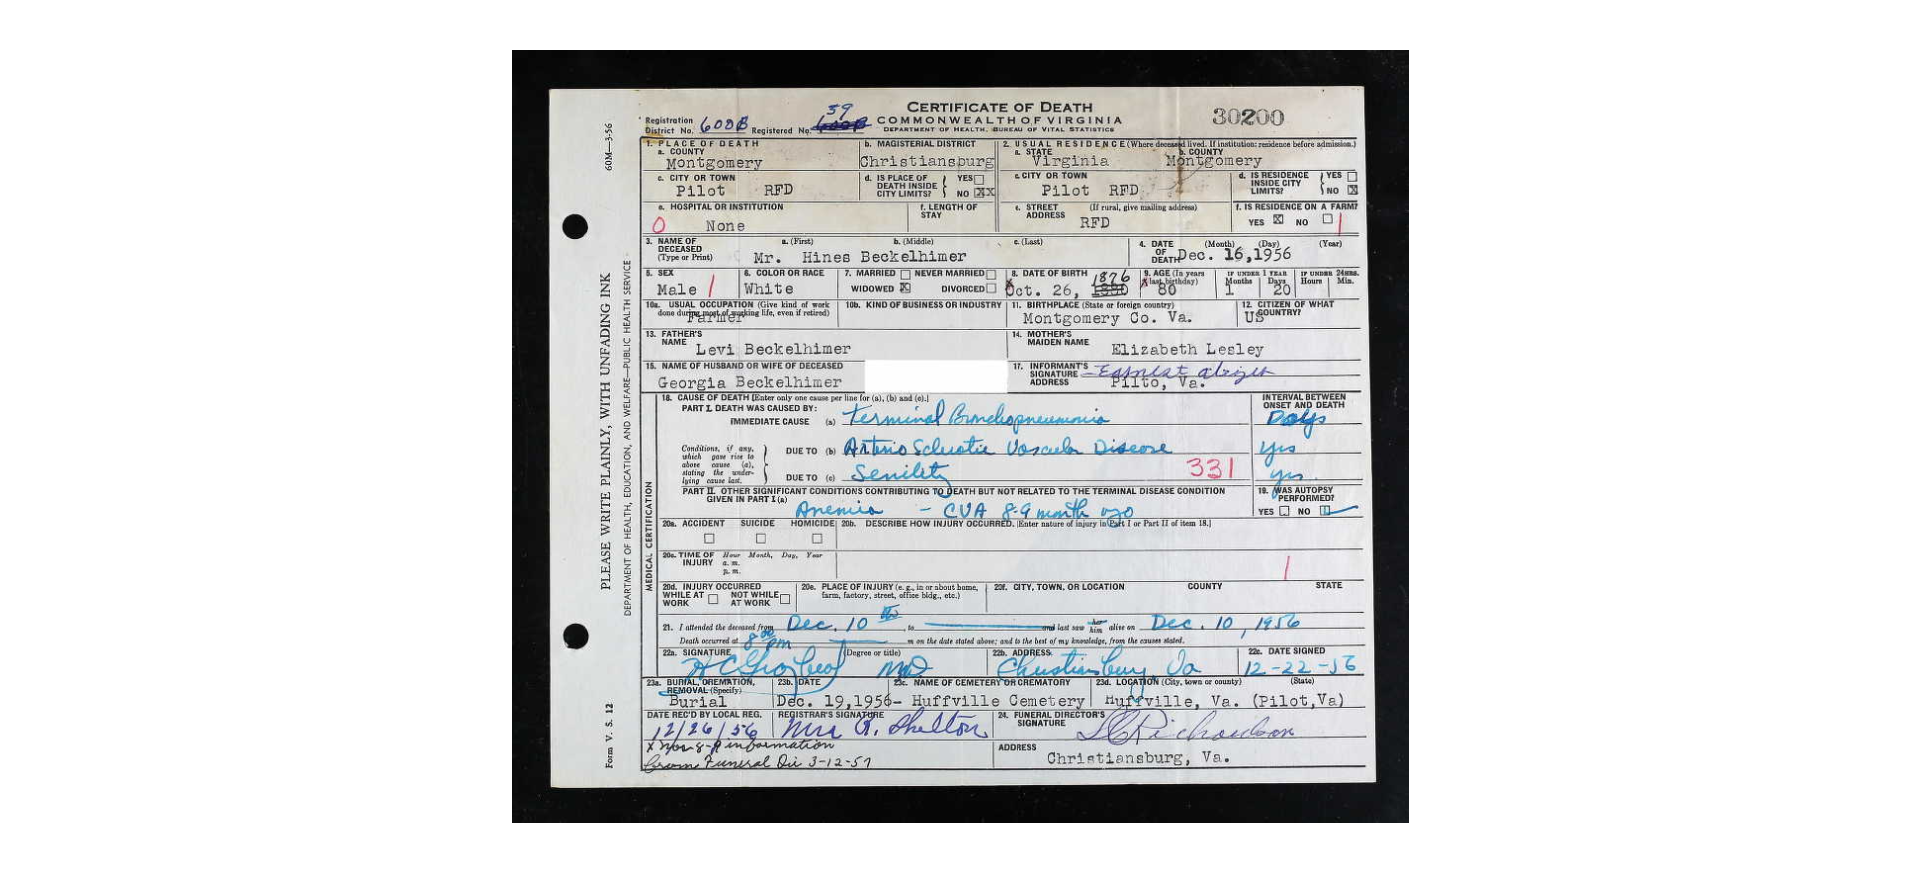 CERTIFICATE OF DEATH
COMMONWEALTH OF VIRGINIA
DEPARTMENT OF HEALTH, BUREAU OF VITAL STATISTICS
30200
Registration District No. 600B Registered No. 600B 59
60M—3-56
PLEASE WRITE PLAINLY, WITH UNFADING INK
DEPARTMENT OF HEALTH, EDUCATION, AND WELFARE—PUBLIC HEALTH SERVICE
Form V. S. 12
1. PLACE OF DEATH
a. COUNTY Montgomery
b. MAGISTERIAL DISTRICT Christiansburg
2. USUAL RESIDENCE (Where deceased lived. If institution: residence before admission.)
a. STATE Virginia
b. COUNTY Montgomery
c. CITY OR TOWN Pilot RFD
d. IS PLACE OF DEATH INSIDE CITY LIMITS? YES NO XX
c. CITY OR TOWN Pilot RFD
d. IS RESIDENCE INSIDE CITY LIMITS? YES NO X
e. HOSPITAL OR INSTITUTION
0 None
f. LENGTH OF STAY
e. STREET ADDRESS (If rural, give mailing address) RFD
f. IS RESIDENCE ON A FARM? YES X NO 1
3. NAME OF DECEASED (Type or Print) a. (First) b. (Middle) c. (Last)
Mr. Hines Beckelhimer
4. DATE OF DEATH (Month) (Day) (Year) Dec. 16,1956
5. SEX Male 1
6. COLOR OR RACE White
7. MARRIED NEVER MARRIED
WIDOWED X DIVORCED
8. DATE OF BIRTH Oct. 26, 1880 1876
9. AGE (In years last birthday) 80
IF UNDER 1 YEAR Months 1 Days 20
IF UNDER 24 HRS. Hours Min.
10a. USUAL OCCUPATION (Give kind of work done during most of working life, even if retired) Farmer
10b. KIND OF BUSINESS OR INDUSTRY
11. BIRTHPLACE (State or foreign country) Montgomery Co. Va.
12. CITIZEN OF WHAT COUNTRY? US
13. FATHER'S NAME Levi Beckelhimer
14. MOTHER'S MAIDEN NAME Elizabeth Lesley
15. NAME OF HUSBAND OR WIFE OF DECEASED
Georgia Beckelhimer
17. INFORMANT'S SIGNATURE Earnest
ADDRESS Pilto, Va.
MEDICAL CERTIFICATION
18. CAUSE OF DEATH [Enter only one cause per line for (a), (b) and (c).]
PART I. DEATH WAS CAUSED BY:
IMMEDIATE CAUSE (a) Terminal Bronchopneumonia
INTERVAL BETWEEN ONSET AND DEATH
Days
Conditions, if any, which gave rise to above cause (a), stating the underlying cause last.
DUE TO (b) Arterio Sclerotic Vascular Disease yrs
DUE TO (c) Senility 331 yrs.
PART II. OTHER SIGNIFICANT CONDITIONS CONTRIBUTING TO DEATH BUT NOT RELATED TO THE TERMINAL DISEASE CONDITION GIVEN IN PART I (a)
Anemia - CVA 8-9 month ago
19. WAS AUTOPSY PERFORMED?
YES NO
20a. ACCIDENT SUICIDE HOMICIDE
20b. DESCRIBE HOW INJURY OCCURRED. [Enter nature of injury in Part I or Part II of item 18.]
20c. TIME OF INJURY Hour Month, Day, Year
a. m.
p. m.
1
20d. INJURY OCCURRED
WHILE AT WORK NOT WHILE AT WORK
20e. PLACE OF INJURY (e.g., in or about home, farm, factory, street, office bldg., etc.)
20f. CITY, TOWN, OR LOCATION COUNTY STATE
21. I attended the deceased from Dec. 10 th to and last saw her him alive on Dec. 10, 1956
Death occurred at 8 00 pm m on the date stated above; and to the best of my knowledge, from the causes stated.
22a. SIGNATURE (Degree or title) MD
22b. ADDRESS Christiansburg, Va
22c. DATE SIGNED 12-22-56
23a. BURIAL, CREMATION, REMOVAL (Specify) Burial
23b. DATE Dec. 19,1956-
23c. NAME OF CEMETERY OR CREMATORY Huffville Cemetery
23d. LOCATION (City, town or county) (State) Huffville, Va. (Pilot,Va)
DATE REC'D BY LOCAL REG. 12/26/56
REGISTRAR'S SIGNATURE Mrs R. Shelton
24. FUNERAL DIRECTOR'S SIGNATURE Richardson
ADDRESS Christiansburg, Va.
X Nos 8-9 information
from Funeral Dir 3-12-57